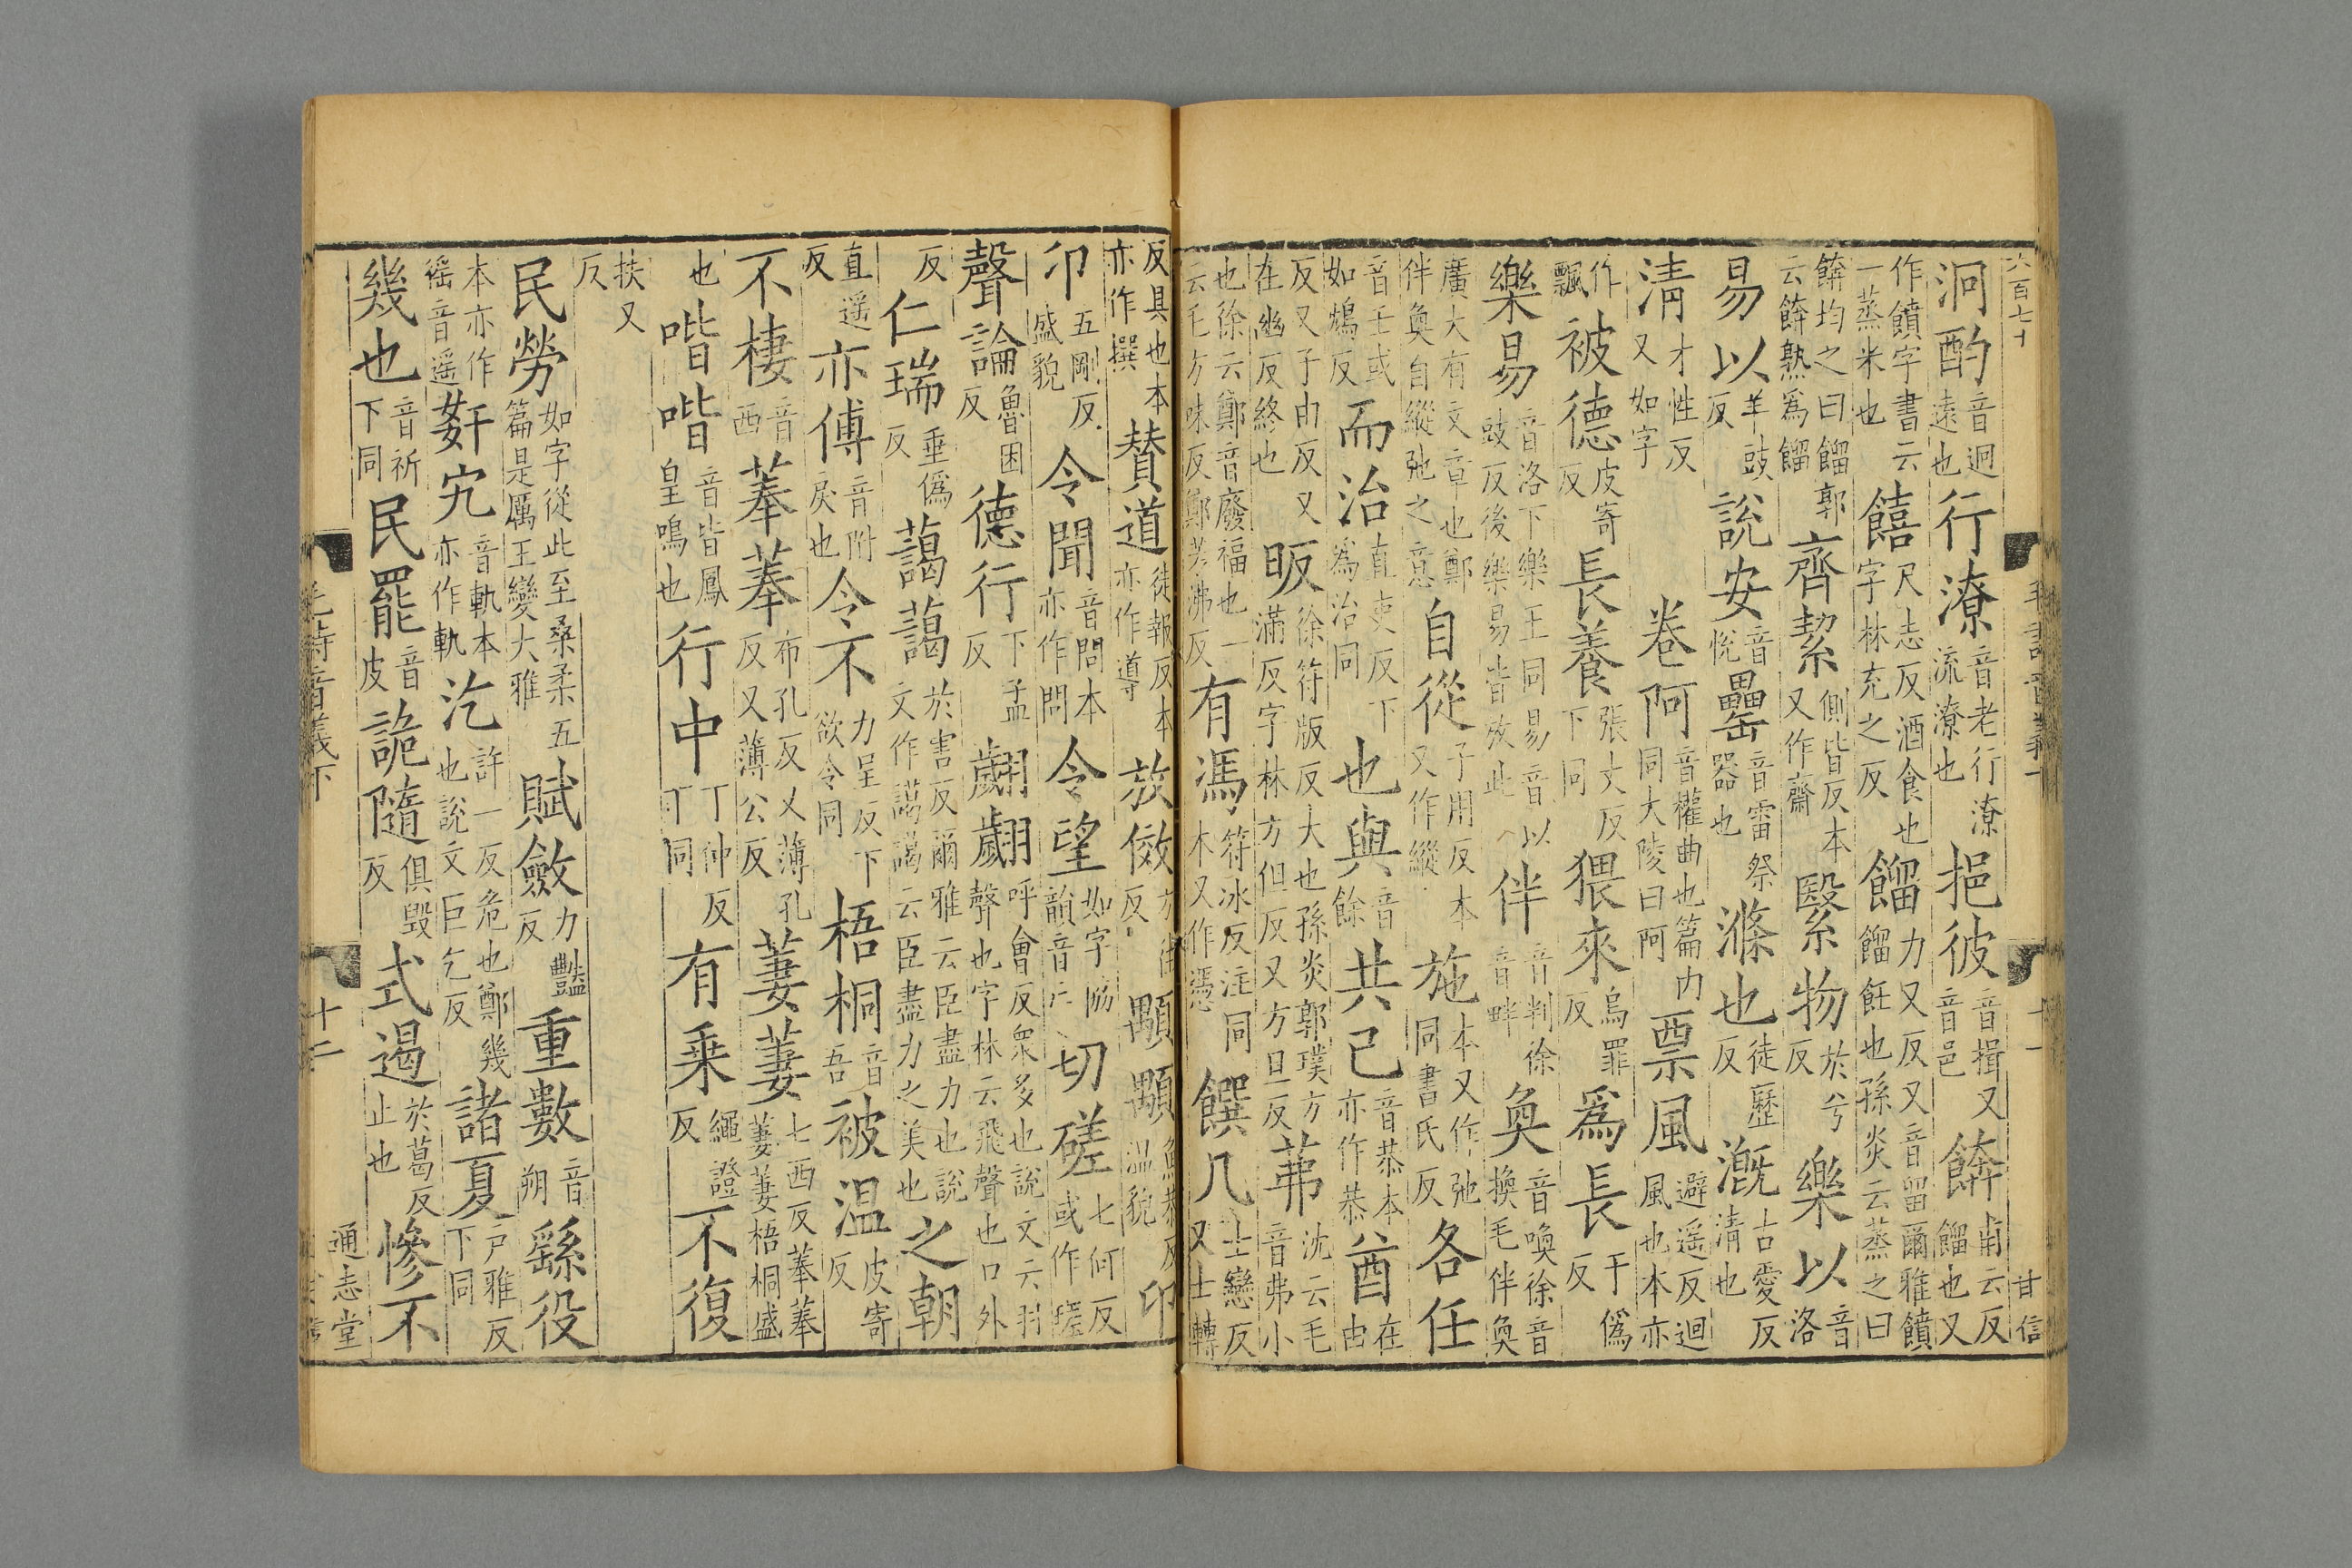 六百七十
泂酌音迥遠也行潦音老行潦流潦也挹彼音揖又音邑餴甫云反餾也又
作饙字書云一蒸米也饎尺志反酒食也字林充之反餾力又反又音留爾雅饙餾飪也孫炎云蒸之曰
餴均之曰餾郭云餴熟爲餾齊絜側皆反本又作齋繄物於兮反樂以音洛
易以羊豉反說安音悅罍音雷祭器也滌也徒歷反漑古愛反清也
清才性反又如字卷阿音權曲也篇内同大陵曰阿票風避遥反迴風也本亦
作飄被德皮寄反長養張丈反下同猥來烏罪反爲長于僞反
樂易音洛下樂王同易音以豉反後樂易皆放此伴音判徐音畔奐音喚徐音換毛伴奐
廣大有文章也鄭伴奐自縱弛之意自從子用反本又作縱施本又作弛同書氏反各任
音壬或如鴆反而治直吏反下爲治同也與音餘共己音恭本亦作恭酋在由
反又子由反又在幽反終也昄徐符版反大也孫炎郭璞方滿反字林方但反又方旦反茀沈云毛音弗小
也徐云鄭音廢福也一云毛方味反鄭芳沸反有馮符冰反注同木又作憑饌几士戀反又士轉
反具也本亦作撰賛道徒報反本亦作導放傚方往反顒顒魚恭反温貌卬
卬五剛反盛貌令聞音問本亦作問令望如字協韻音亡切磋七何反或作瑳
聲論魯困反德行下孟反翽翽呼會反衆多也說文云羽聲也字林云飛聲也口外
反仁瑞垂僞反藹藹於害反爾雅云臣盡力也說文作譪譪云臣盡力之美也之朝
直遥反亦傅音附戾也令不力呈反下欲令同梧桐音吾被温皮寄反
不棲音西菶菶布孔反又薄孔反又薄公反萋萋七西反菶菶萋萋梧桐盛
也喈喈音皆鳳皇鳴也行中丁仲反丁同有乗繩證反不復
扶又反
民勞如字從此至桑柔五篇是厲王變大雅賦斂力豔反重數音朔繇役
本亦作徭音遥姧宄音軌本亦作軌汔許一反危也鄭幾也說文巨乞反諸夏户雅反下同
幾也音祈下同民罷音皮詭隨俱毁反式遏於葛反止也慘不
通志堂
毛詩音義下
十二
甘信